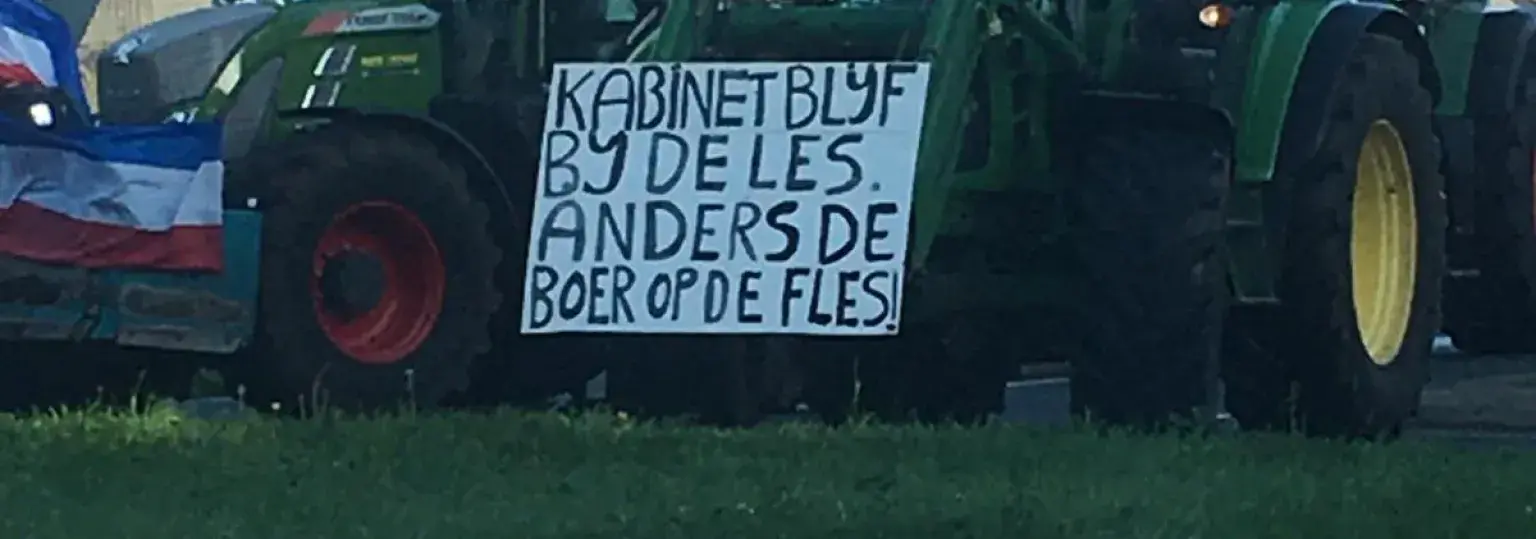 KABINET BLYF
BY DE LES.
ANDERS DE
BOER OP DE FLES!